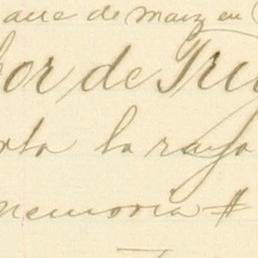 acre de maiz en
or de Tri
la raya
memoria #